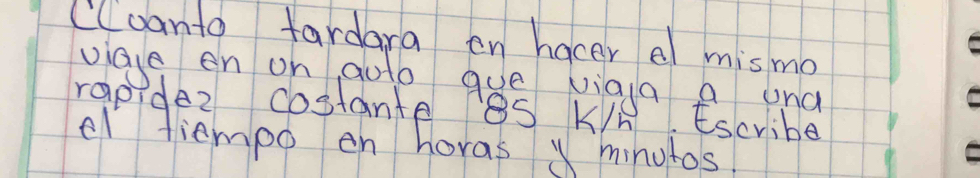 ¿Cuanto tardara en hacer el mismo
viaje en un auto que viaja a una
rapidez costante 85 K/h. Escribe
el tiempo en horas y minutos.